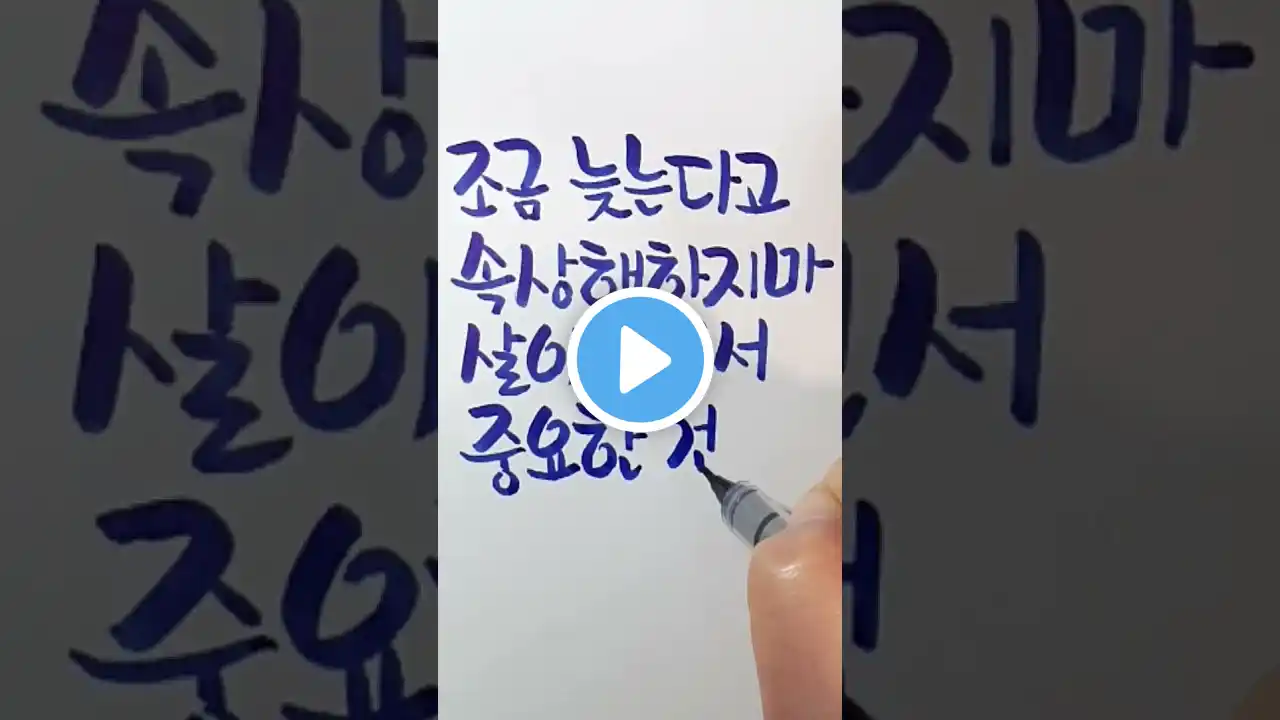 조금 늦는다고
속상해하지마
살아 서
중요한 건